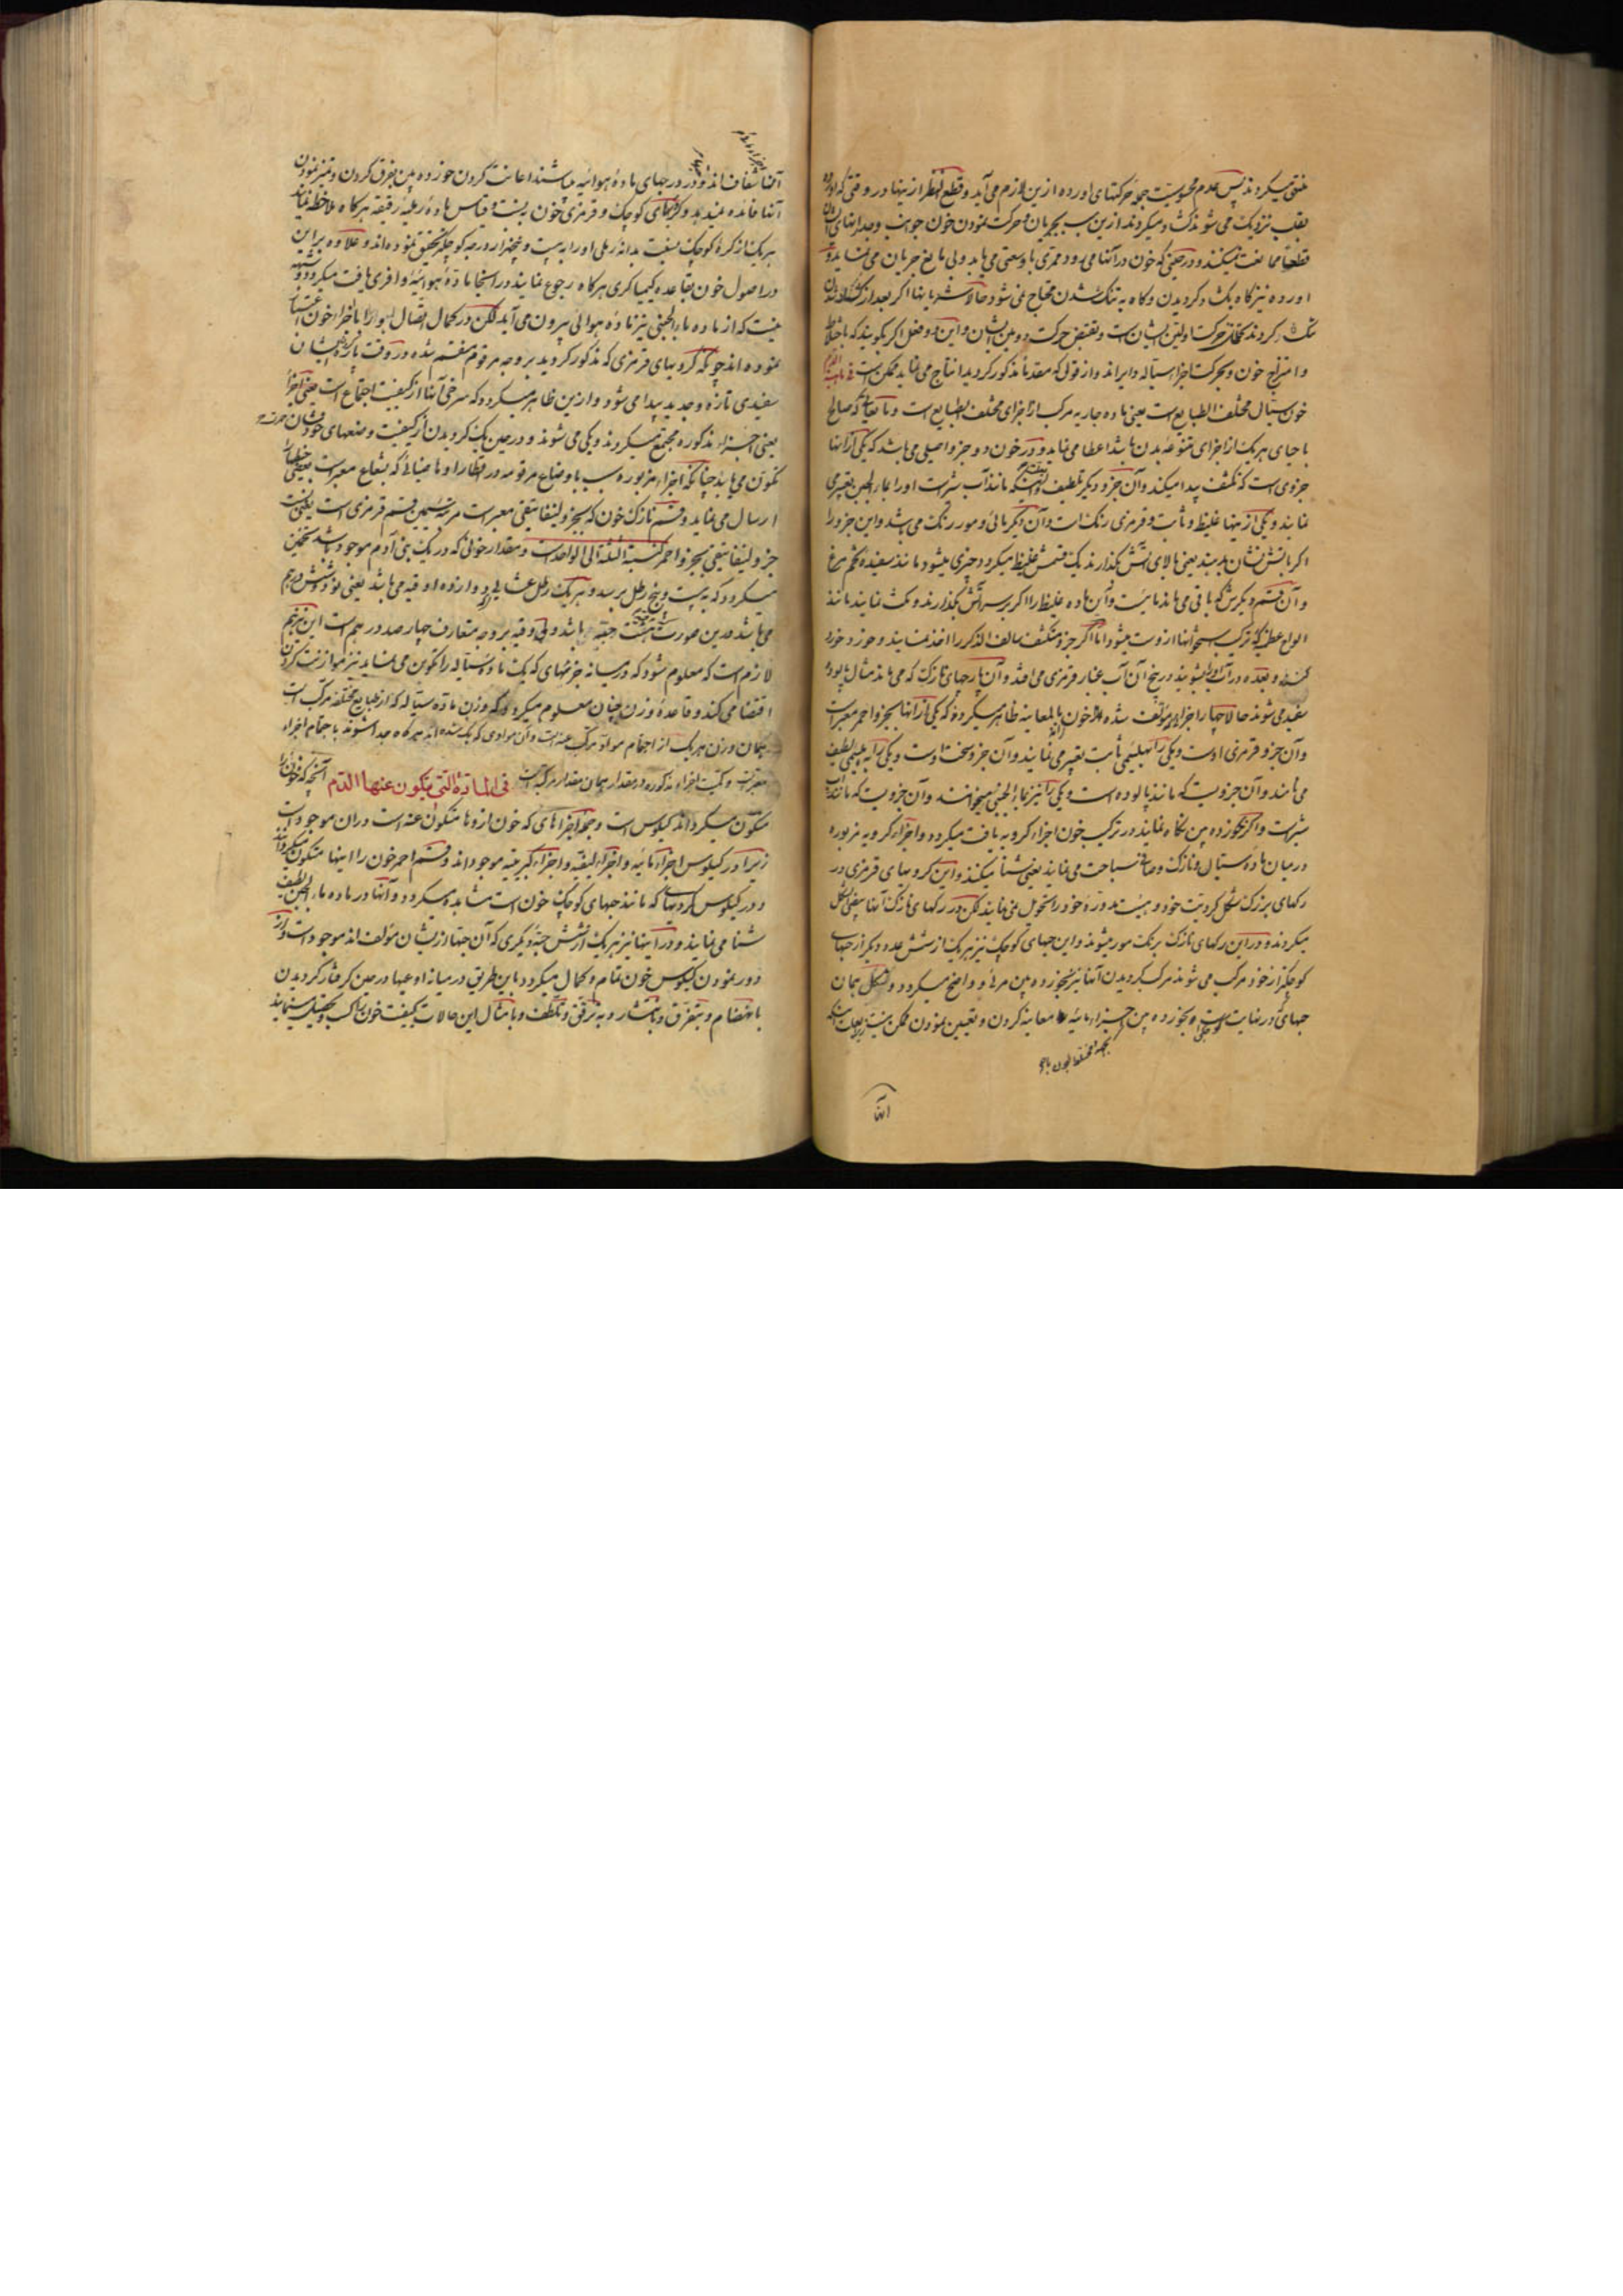 منتفی میکردند پس عدم محسوسیت جمله حرکتهای اورده ازین لازم می آید و قطع النظر از ینها در وقتی که اورده
بقلب نزدیک می شوند کشاد میکردند ازین سبب بجریان و حرکت نمودن خون جوانب وجدرانهای آن
قطعا ممانعت نمیکنند و در حینی که خون در آنها می رود ممری با وسعتی می یابد و بی مانع جریان می نماید و
اورده نیز کاه بکشاد کردیدن و کاه به تنک شدن محتاج نمی شود حالا شریانها اکر بعد از کشاده شدن
تنک کردند حرکت اولین ایشان است و نقیض حرکت دومین ایشان و این دو فعل اکر بکویند که باختلاط
و امتزاج خون و بحرکت اجزا سیاله و ایراند و از قول که مقدما مذکور کردید انتاج می نماید ممکن است
خون سیال مختلف الطبایع است یعنی ماده جاریه مرکب از اجزای مختلف الطبایع است که صالح
با جای هر یک از اجزای متنوعه بدن باشد اعطا می نماید و در خون دو جزو اصلی می باشد که یکی از آنها
جزوی است که تکثف پیدا میکند و آن جزو دیکر لطیف که مانند آب شیر است او را بماء الجبن تعبیر می
نمایند و یکی از ینها غلیظ و ثابت و قرمزی رنک است و آن دیکر مائی و مور رنک می باشد و این جزو را
اکر باتش نشان بدهند یعنی بالای آتش بکذارند یک قسمش غلیظ میکردد چیزی میشود مانند سفیده تخم مرغ
و آن قسم دیکرش که باقی می ماند مائیست و آن ماده غلیظ را اکر بر سر آتش بکذارند و مکث نمایند مانند
انواع عظمی که ترکیب استخوانها از وست میشود اما اکر جزو متکثف سالف الذکر را اخذ نمایند و خورد و خورد
کنند و بعده در آب بشویند در بیخ آن آب غبار قرمزی می افتد و آن پارچهای نازک که می ماند مثال پالوده
سفید می شوند حالا چهار اجزا مؤلف شده خون بالمعاینه ظاهر میکردد که یکی از آنها بجزو احمر معبر است
و آن جزو قرمزی اوست و یکی را بهلیمی ثابت تعبیر می نمایند و آن جزو سخت اوست و یکی را به لیمی لطیف
می نامند و آن جزویست که مانند پالوده است و یکی را نیز بماء الجبن میخوانند و آن جزویست که مانند آب
شیر است و اکر بخورده بین نکاه نمایند در ترکیب خون اجزاء کرویه یافت میکردد و اجزاء کرویه مزبوره
در میان ماده سیال و نازک و صافی سباحت می نمایند یعنی شنا میکنند و این کرویهای قرمزی در
رکهای بزرک شکل کرویت خود و هیئت مدوره خود را تحویل نمی نمایند لکن در رکهای نازک آنها بیضی الشکل
میکردند و در این رکهای نازک برنک مور میشوند و این حبهای کوچک نیز هر یک از شش عدد دیکر از حبهای
کوچکتر از خود مرکب می شوند مرکب کردیدن آنها نیز بخورده بین مرئی و واضح میکردد و لشکل همان
حبهای در نهایت کوچکی است بخورده بین اجزاء مائیه معاینه کردن و تعیین نمودن ممکن نیست
آنها
آنها شفاف اند و در درجهای ماده هوائیه میباشند اعانت کردن خورده بین بفرق کردن و تمیز نمودن
آنها فائده نمیدهد و کرویهای کوچک و قرمزی خون بنسبت و قیاس ماده رملیه رقیقه هر کاه ملاحظه نمایند
هر یک از کره کوچک بنسبت بدانه رملی او را به بیست و پنجهزار درجه کوچکتر تحقیق نموده اند و علاوه بر این
در اصول خون بقاعده کیمیاکری هر کاه رجوع نمایند در اینجا ماده هوائیه وافری یافت میکردد و شبهه
نیست که از ماده ماء الجبنی نیز ماده هوائی بیرون می آید لکن در کمال اتصال هوا را باجزاء خون اعتنا
نموده اند چونکه کرویهای قرمزی که مذکور کردید بر وجه مرقوم منقسم شده در وقت پاره پاره شدن ایشان
سفیدی تازه و جدید پیدا می شود و از ین ظاهر میکردد که سرخی آنها از کیفیت اجتماع است یعنی اجزا
یعنی اجزاء مذکوره مجتمع میکردند و یکی می شوند و در حین یک کردیدن از کیفیت وضعهای خودشان حمرت
تلون می یابد چنانکه اجزاء مزبوره بسبب اوضاع مرقومه در انظار او ما ضیائی که بشعاع معبر است بعضی خطها
ارسال می نماید و قسم نازک خون که بجزو لینفاتیقی معبر است مرتبه ثمین قسم قرمزی است یعنی نسبت
جزو لینفاتیقی بجزو احمر کنسبة الثلثة الی الواحد است و مقدار خونی که در یک بنی آدم موجود باشد تخمین
میکردد که به بیست و پنج رطل برسد و هر یک رطل عشاری دوازده اوقیه می باشد یعنی نود و شش درهم
می باشد در ین صورت هشت حبه باشد و وقیه بر وجه متعارف چهار صد درهم است این نیز هم
لازم است که معلوم شود که در میانه جزئهای که یک ماده سیاله را تکوین می نماید نیز موازنت کردن
اقتضا می کند و قاعده وزن چنان معلوم میکردد که وزن ماده سیاله که از طبایع مختلفه مرکب است
همان وزن هر یک از اجسام مواد مرکب عنه است و آن موادی که یک شده اند هر کاه جدا شوند باجسام اجزاء
معبر است و کمیت اجزاء مذکوره در مقدار همان مقدار مرکب است فی المادة التی یتکون عنها الدم آنچه که خون را
متکون میکرداند کیلوس است و جمله اجزاهای که خون از وها متکون عنه است در ان موجود است
زیرا در کیلوس اجزاء مائیه و اجزاء لیفیه و اجزاء کبریتیه موجود اند و قسم احمر خون را اینها متکون میکردانند
و در کیلوس کرویهای که مانند حبهای کوچک خون است مشاهده میکردد و آنها در ماده ماء الجبن لطیف
شنا می نمایند و در آنها نیز هر یک از شش حبه دیکری که آن حبها از یشان مؤلف اند موجود است و از
دور نمودن کیلوس خون تمام و کمال میکردد باین طریق در میانه اوعیها در حین کرفتار کردیدن
بانهضام و بتفرق و بانتشار و به ترقق و تلطف و بامثال این حالات کیفیت خون را کسب و تحصیل مینماید